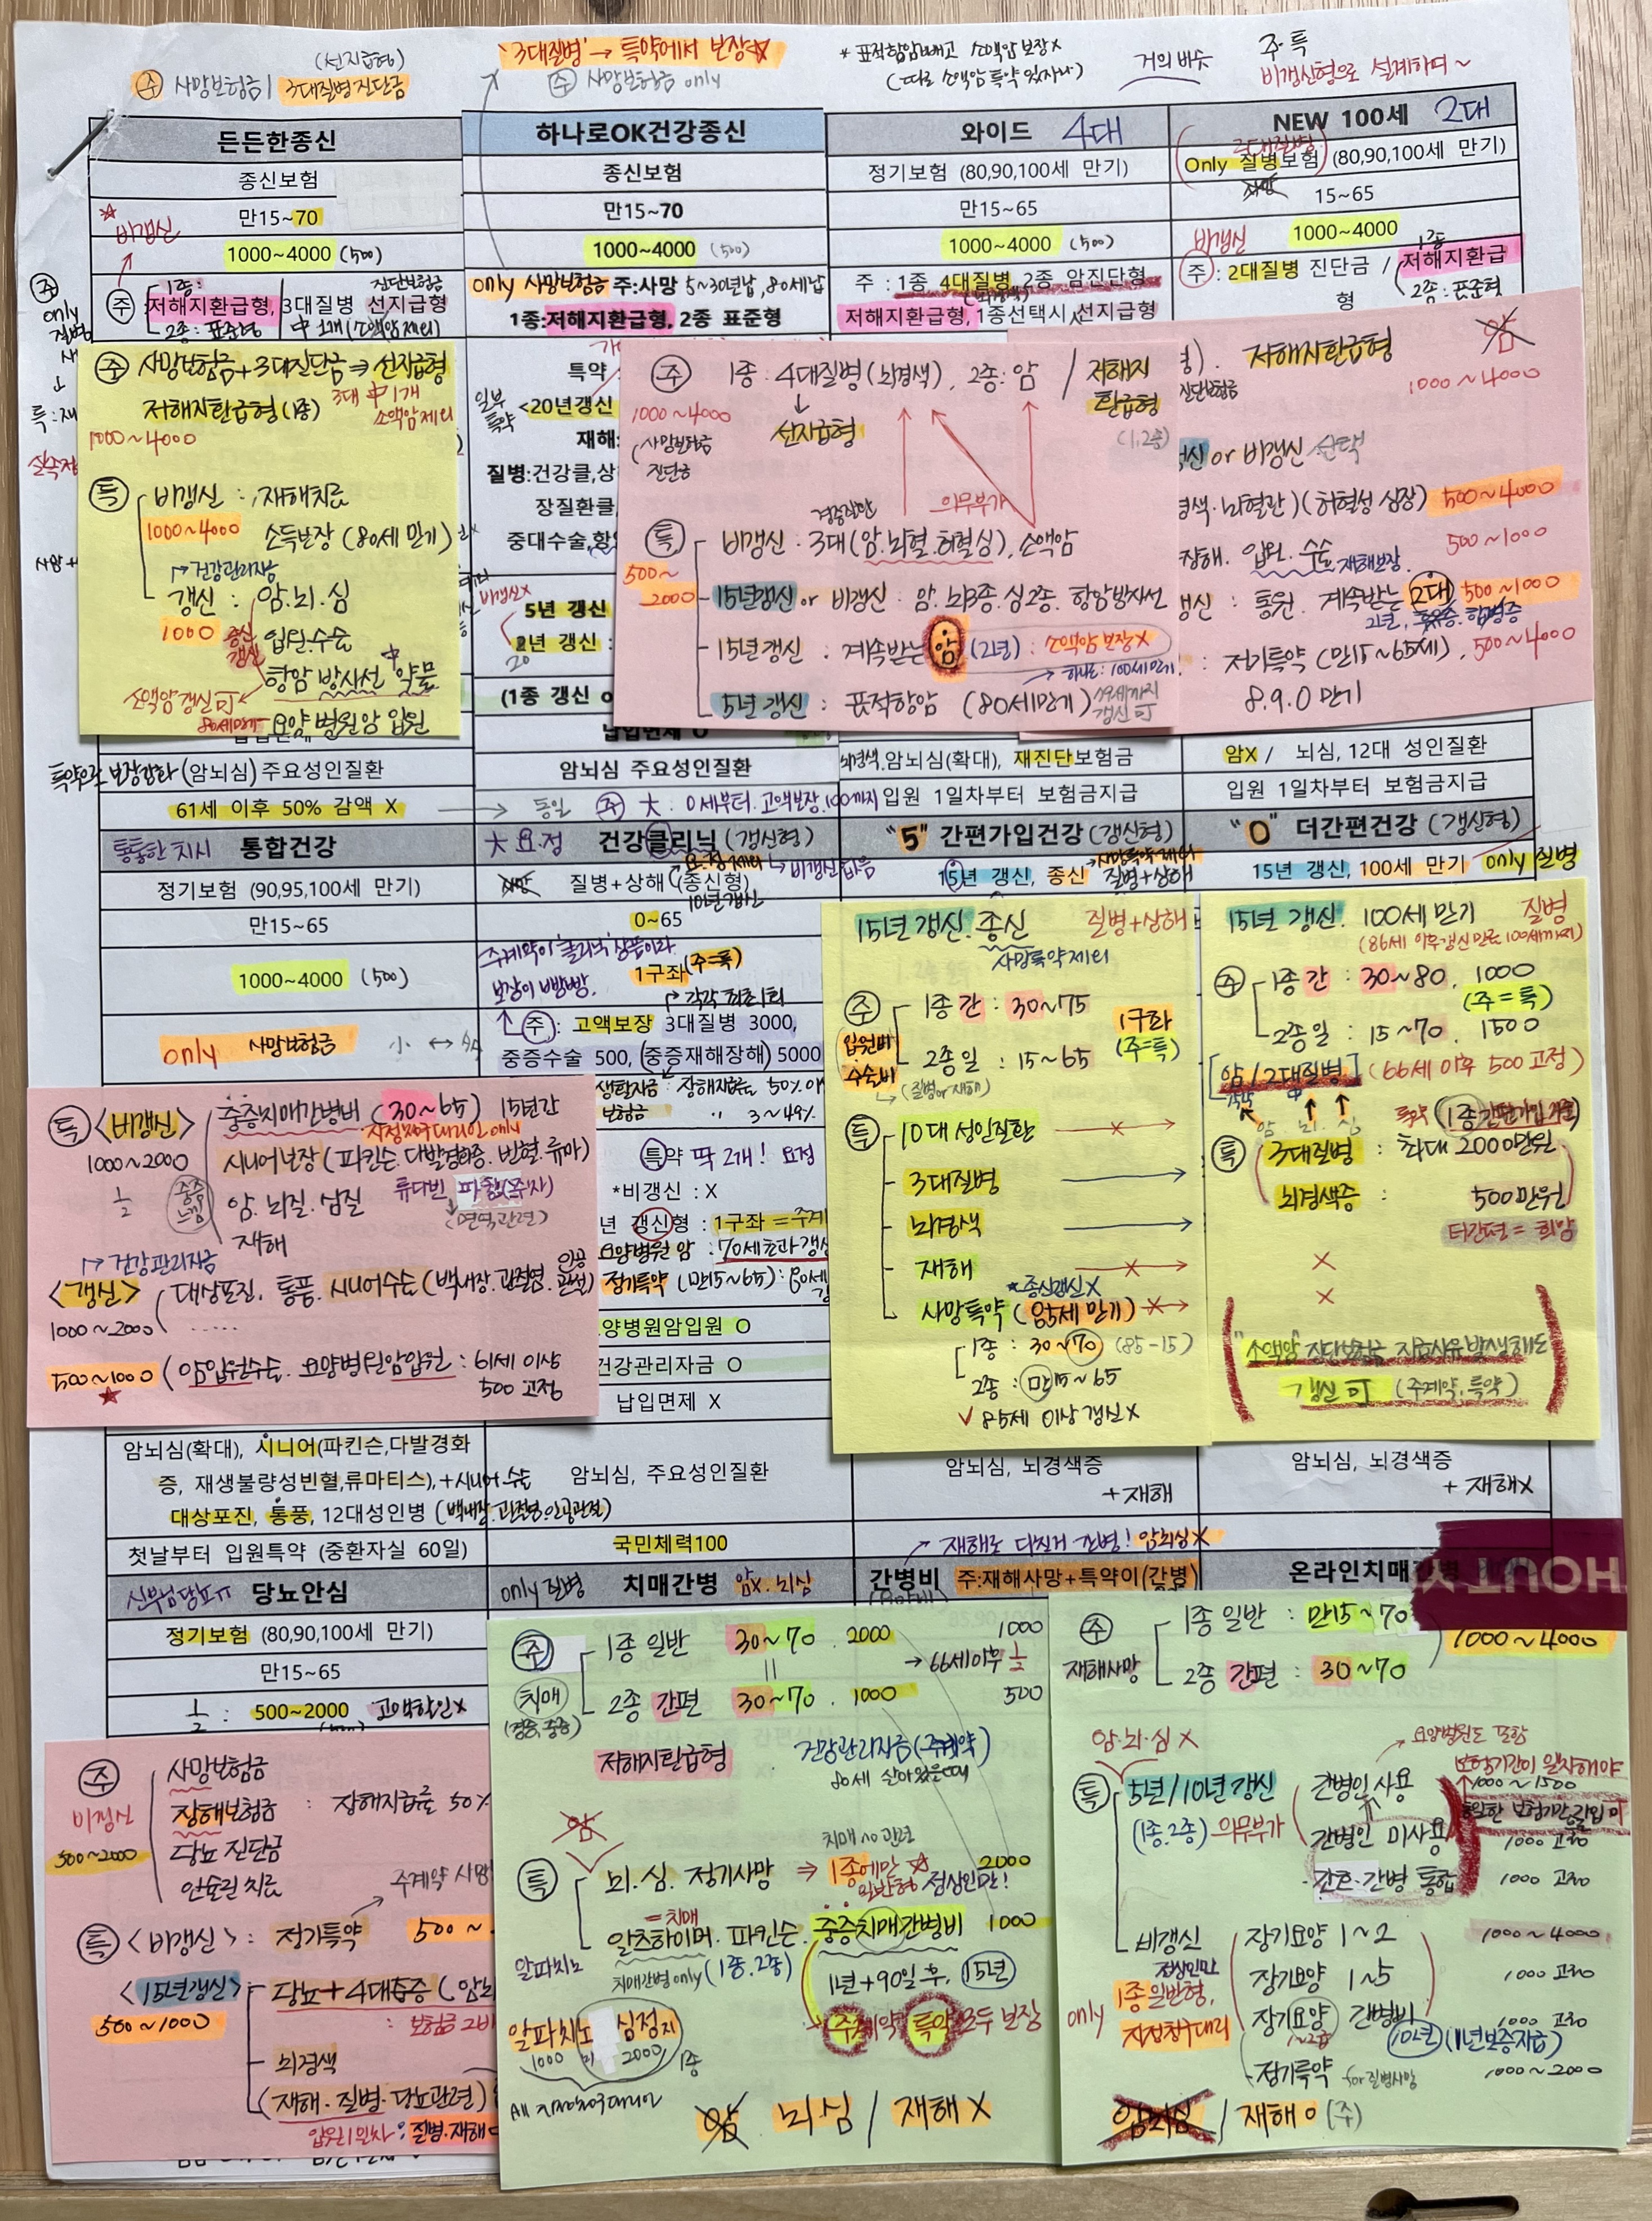 '3대질병' → 특약에서 보장☆
(선지급형)
㈜ 사망보험금 | 3대질병진단금
㈜ 사망보험금 only
* 표적항암빼고 소액암 보장X
(따로 소액암특약 있지나)
거의 비슷
주·특
비갱신형으로 설계하며~
든든한종신
하나로OK건강종신
와이드 4대
NEW 100세 2대
종신보험
종신보험
정기보험 (80,90,100세 만기)
Only 질병보험 (80,90,100세 만기)
만15~70
만15~70
만15~65
15~65
비갱신
1000~4000 (500)
1000~4000 (500)
1000~4000 (500)
비갱신 1000~4000
1종:
저해지환급형, 3대질병 선지급형
2종: 표준형 中 1개 (소액암제외)
진단보험금
only 사망보험금 주:사망 5~30년납, 80세납
1종:저해지환급형, 2종 표준형
주 : 1종 4대질병, 2종 암진단형
저해지환급형, 1종선택시 선지급형
주 : 2대질병 진단금 / 저해지환급
형 2종:표준형
1종
㈜ 사망보험금+3대진단금 ⇒ 선지급형
저해지환급형(1종) 3대 中 1개
소액암제외
1000~4000
특 비갱신 : 재해치료
1000~4000 소득보장 (80세 만기)
건강관리자금
갱신 : 암.뇌.심
1000 입원.수술
종신갱신
항암 방사선 약물
소액암갱신可
80세만기 요양병원암 입원
특약 :
일부
특약
<20년갱신
재해:
질병:건강클,상
장질환클
중대수술,항암
비갱신X
5년 갱신
2년 갱신 :
20
(1종 갱신 o
㈜ 1종: 4대질병(뇌경색), 2종: 암 / 저해지
환급형
(1,2종)
1000~4000
(사망보험금
진단금
선지급형
의무부가
특 비갱신 : 3대(암.뇌혈.허혈심), 소액암
500~
2000
15년갱신 or 비갱신 : 암. 뇌3종. 심2종. 항암방사선
15년갱신 : 계속받는 암 (2년) : 소액암보장X
하나로:100세만기
5년 갱신 : 표적항암 (80세만기)
갱신可
저해지환급형
1000~4000
진단보험금
갱신 or 비갱신 선택
경색·뇌혈관)(허혈성 심장) 500~4000
장해. 입원.수술. 재해보장. 500~1000
갱신 : 통원. 계속받는 2대 500~1000
: 정기특약 (만15~65세), 500~4000
8.9.0 만기
납입면제 O
특약으로 보장강화 (암뇌심) 주요성인질환
암뇌심 주요성인질환
뇌경색.암뇌심(확대), 재진단보험금
암X / 뇌심, 12대 성인질환
61세 이후 50% 감액 X
동일
㈜ 大 : 0세부터. 고액보장.100까지
입원 1일차부터 보험금지급
입원 1일차부터 보험금지급
통합건강
大 요.정 건강클리닉 (갱신형)
"5" 간편가입건강 (갱신형)
"0" 더간편건강 (갱신형)
정기보험 (90,95,100세 만기)
질병+상해 (종신형)
10년갱신
비갱신 없음
15년 갱신, 종신 질병+상해
사망특약 제외
15년 갱신, 100세 만기 only 질병
만15~65
0~65
1000~4000 (500)
주계약이 '클리닉' 상품이라
보장이 빵빵.
1구좌 (주=특)
각각 최초1회
only 사망보험금 小
주 : 고액보장 3대질병 3000,
중증수술 500, (중증재해장해) 5000
생활자금 : 장해지급률 50% 이
보험금 〃 3~49%
특약 딱 2개! 요정
*비갱신 : X
년 갱신형 : 1구좌 = 주계
요양병원 암 : 70세초과갱신
정기특약 (만15~65):
요양병원암입원 O
건강관리자금 O
납입면제 X
특 <비갱신> 중증치매간병비 (30~65) 15년간
지정청구대리인 only
1000~2000 시니어보장 (파킨슨.다발경화증.빈혈.류마)
1/2 암. 뇌질. 심질
(면역관련)
재해
건강관리자금
<갱신> 대상포진, 통풍, 시니어수술 (백내장.관절염.인공관절)
1000~2000 ......
500~1000 (암입원수술. 요양병원암입원 : 61세 이상
500 고정
15년 갱신. 종신 질병+상해
사망특약제외
㈜ 1종 간 : 30~75
2종 일 : 15~65
입원비
수술비
(질병or재해)
1구좌
(주=특)
특 10대 성인질환
3대질병
뇌경색
재해
*종신갱신X
사망특약 (85세 만기)
1종 : 30~70 (85-15)
2종 : 만15~65
✓ 85세 이상 갱신X
15년 갱신. 100세 만기 질병
(86세 이후 갱신 만료 100세까지)
㈜ 1종 간 : 30~80. 1000
(주=특)
2종 일 : 15~70. 1500
[암/2대질병] (66세 이후 500 고정)
암 뇌 심
(1종간편가입 기준)
특 3대질병 : 최대 2000만원
뇌경색증 : 500만원
더간편 = 희망
X
X
"소액암" 진단보험금 지급사유 발생해도
갱신可 (주계약, 특약)
암뇌심(확대), 시니어(파킨슨,다발경화
증, 재생불량성빈혈,류마티스), +시니어 수술
대상포진, 통풍, 12대성인병 (백내장.관절염.인공관절)
암뇌심, 주요성인질환
암뇌심, 뇌경색증
+ 재해
암뇌심, 뇌경색증
+ 재해X
첫날부터 입원특약 (중환자실 60일)
국민체력100
당뇨안심
only 질병 치매간병 암X. 뇌심
재해로 다친거 간병! 암뇌심X
간병비 주:재해사망+특약이(간병)
온라인치매간병
정기보험 (80,90,100세 만기)
만15~65
1/2 : 500~2000 고액할인X
㈜ 사망보험금
비갱신 장해보험금 : 장해지급률 50%
500~2000 당뇨 진단금
인슐린 치료
주계약 사망
특 <비갱신> : 정기특약 500~
<15년갱신> 당뇨+4대합증 (암뇌
500~1000 : 보험금 2배
뇌경색
(재해. 질병. 당뇨관련)
입원1일차 : 질병.재해
㈜ 1종 일반 30~70. 2000 1000
치매 → 66세이후 1/2
(경증,중증) 2종 간편 30~70. 1000 500
저해지환급형 건강관리자금 (주계약)
80세 살아있을때
암
치매no관련
특 뇌.심. 정기사망 ⇒ 1종에만☆ 2000
일반형 정상인만!
=치매
알츠하이머. 파킨슨. 중증치매간병비 1000
치매간병only (1종.2종)
1년+90일 후, 15년
주계약 특약 모두 보장
알파치노 심정지
1000 2000 1종
암 뇌.심 / 재해 X
㈜ 1종 일반 : 만15~70
재해사망 2종 간편 : 30~70
1000~4000
암.뇌.심 X
요양병원도 포함
보험기간이 일치해야
특 5년/10년 갱신 간병인 사용 1000~1500
(1종.2종) 의무부가 간병인 미사용 1000 고정
간호·간병 통합 1000 고정
비갱신 장기요양 1~2 1000~4000
정상인만
only 1종 일반형, 장기요양 1~5 1000 고정
지정청구대리 장기요양 간병비 1000 고정
10년 (1년보증지급)
정기특약 for 질병사망 1000~2000
암뇌심 / 재해 O (주)